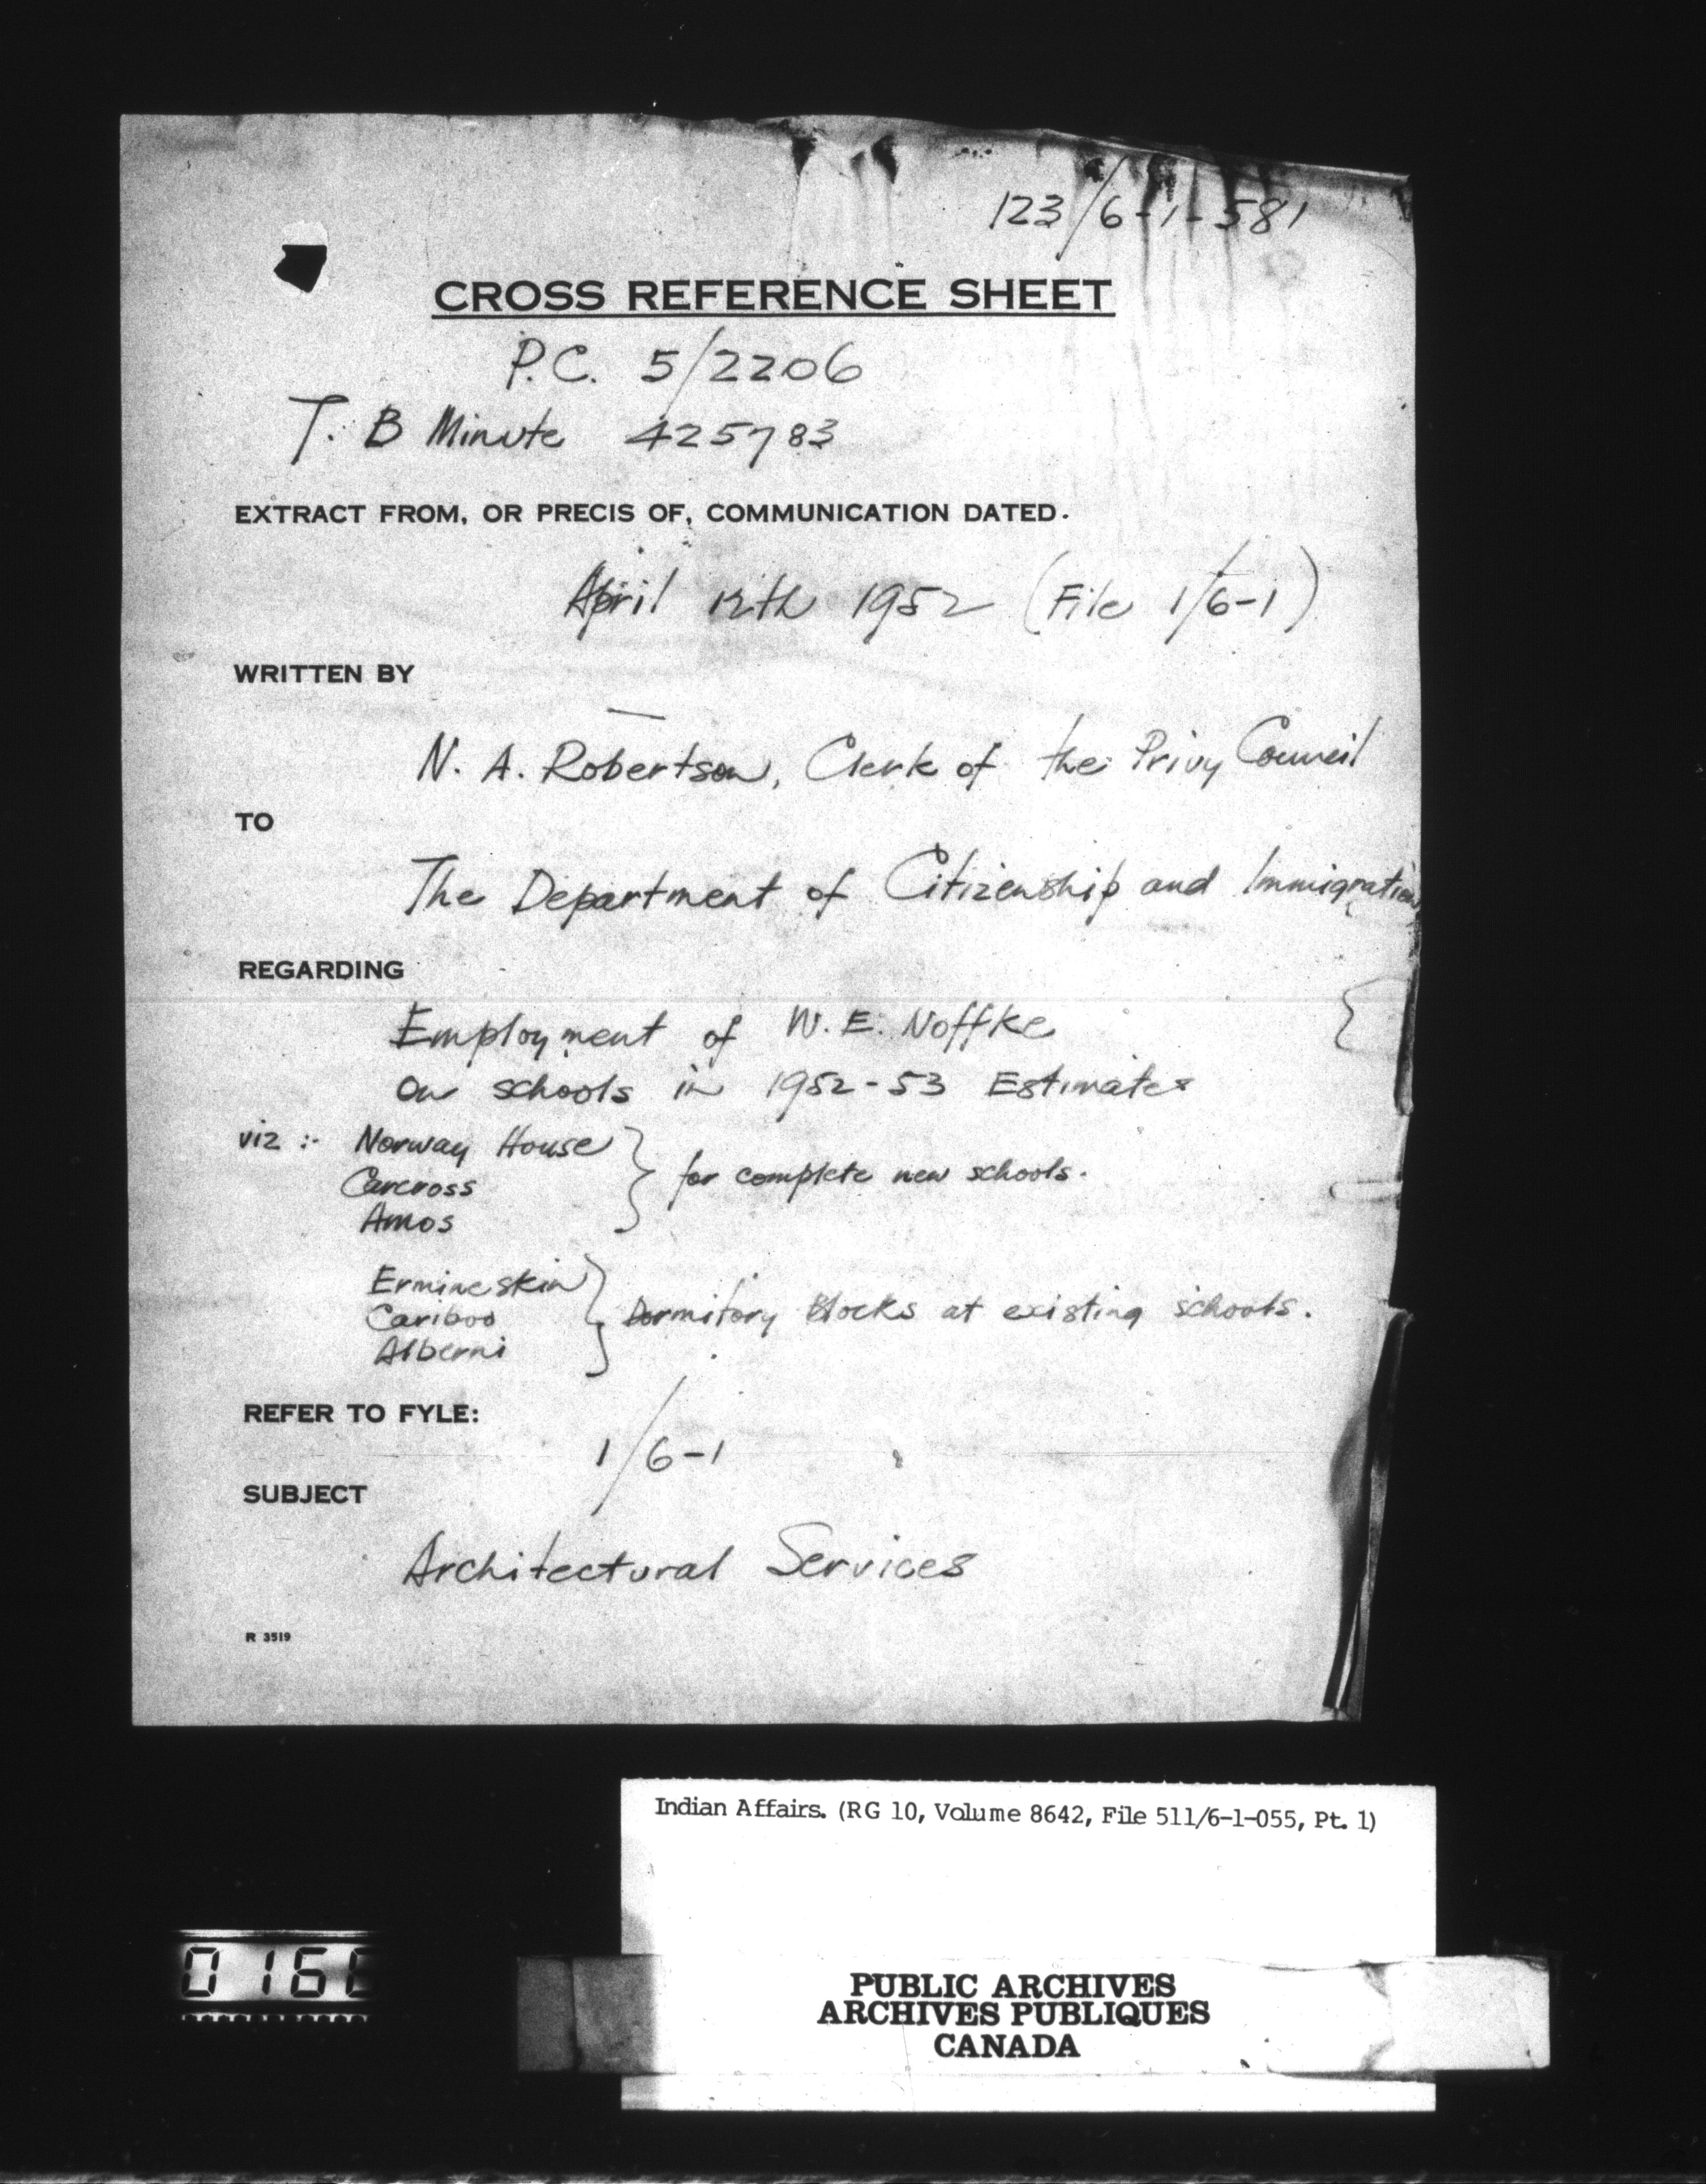 123/6-1-581
CROSS REFERENCE SHEET
P.C. 5/2206
T. B Minute 425783
EXTRACT FROM, OR PRECIS OF, COMMUNICATION DATED.
April 12th 1952 (File 1/6-1)
WRITTEN BY
N. A. Robertson, Clerk of the Privy Council
TO
The Department of Citizenship and Immigration
REGARDING
Employment of W. E. Noffke
on schools in 1952-53 Estimates
viz :- Norway House
Carcross
Amos
for complete new schools.
Ermineskin
Cariboo
Alberni
Dormitory Blocks at existing schools.
REFER TO FYLE:
1/6-1
SUBJECT
Architectural Services
R 3519
Indian Affairs. (RG 10, Volume 8642, File 511/6-1-055, Pt. 1)
PUBLIC ARCHIVES
ARCHIVES PUBLIQUES
CANADA